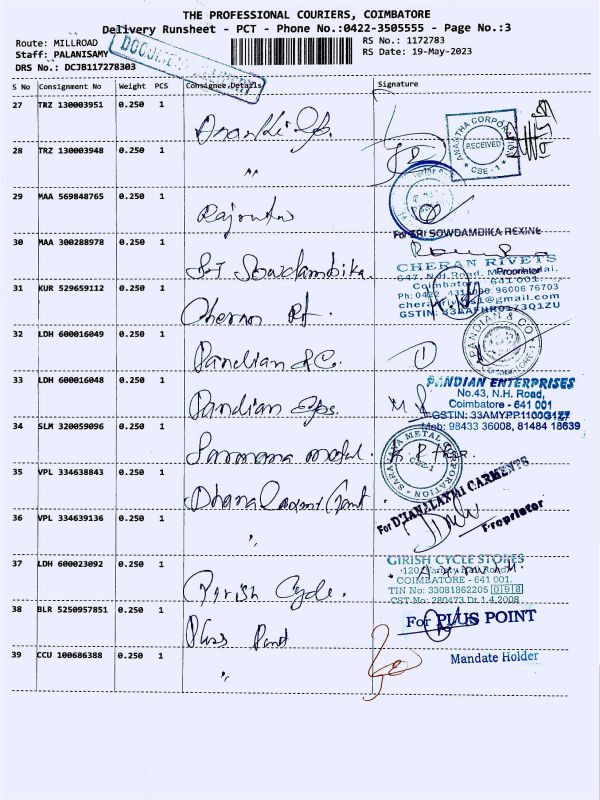 THE PROFESSIONAL COURIERS, COIMBATORE
Delivery Runsheet - PCT - Phone No.:0422-3505555 - Page No.:3
Route: MILLROAD
RS No.: 1172783
Staff: PALANISAMY
RS Date: 19-May-2023
DRS No.: DCJB117278303
S No Consignment No Weight PCS Consignee Details Signature
27 TRZ 130003951 0.250 1
RECEIVED
CBE - 1
28 TRZ 130003948 0.250 1 "
29 MAA 569848765 0.250 1
For SRI SOWDAMBIKA REXINE
30 MAA 300288978 0.250 1 Sri Sowdambika
Proprietor
CHERAN RIVETS
31 KUR 529659112 0.250 1 Cheran
32 LDH 600016049 0.250 1 Pandian & C.
PANDIAN & CO
33 LDH 600016048 0.250 1 Pandian
PANDIAN ENTERPRISES
No.43, N.H. Road,
Coimbatore - 641 001
GSTIN: 33AMYPP1100G1Z7
Mob: 98433 36008, 81484 18639
34 SLM 320059096 0.250 1
METAL CORPORATION
CBE-1
35 VPL 334638843 0.250 1
For DHANALAXMI GARMENTS
Proprietor
36 VPL 334639136 0.250 1 "
37 LDH 600023092 0.250 1 Girish Cycle.
GIRISH CYCLE STORES
COIMBATORE - 641 001.
TIN No: 33081862205 098
CST No: 280473 Dt 1.4.2008
38 BLR 5250957851 0.250 1 Plus Point
For PLUS POINT
39 CCU 100686388 0.250 1 "
Mandate Holder